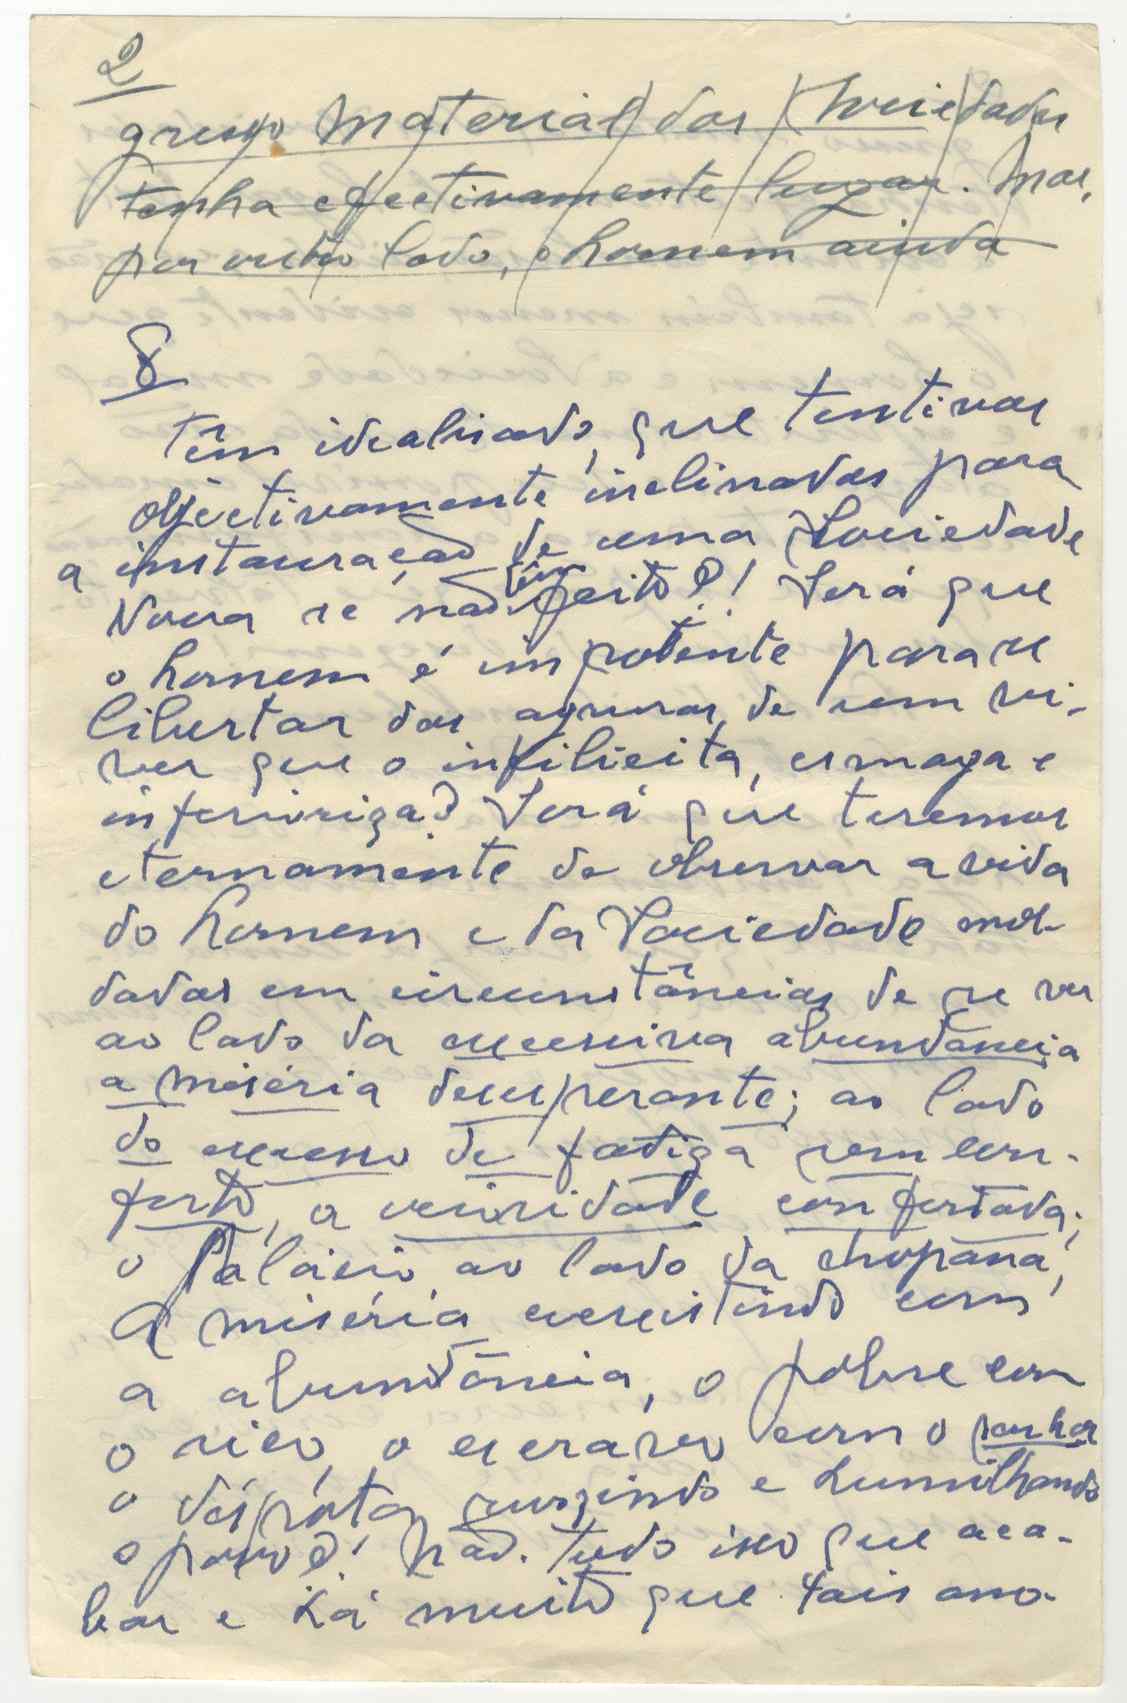 2
gresso material das Sociedades
tenha efectivamente lugar. Mas,
por outro lado, o homem ainda
8
têm idealisado, que tentivas
objectivamente inclinadas para
a instauração de uma Sociedade
Nova se não têm feito?! Será que
o homem é impotente para se
libertar das agruras de um vi-
ver que o infelicita, esmaga e
inferioriza? Será que teremos
eternamente de observar a vida
do homem e da Sociedade mol-
dadas em circunstâncias de se ver
ao lado da excessiva abundância
a miséria desesperante; ao lado
do excesso de fatiga sem con-
forto, a ociosidade confortada;
o Palácio ao lado da choupana,
A miséria coexistindo com
a abundância, o pobre com
o rico, o escravo com o senhor
o déspota, e humilhando
o povo?! Não. Tudo isso que aca-
bar e há muito que tais ano-